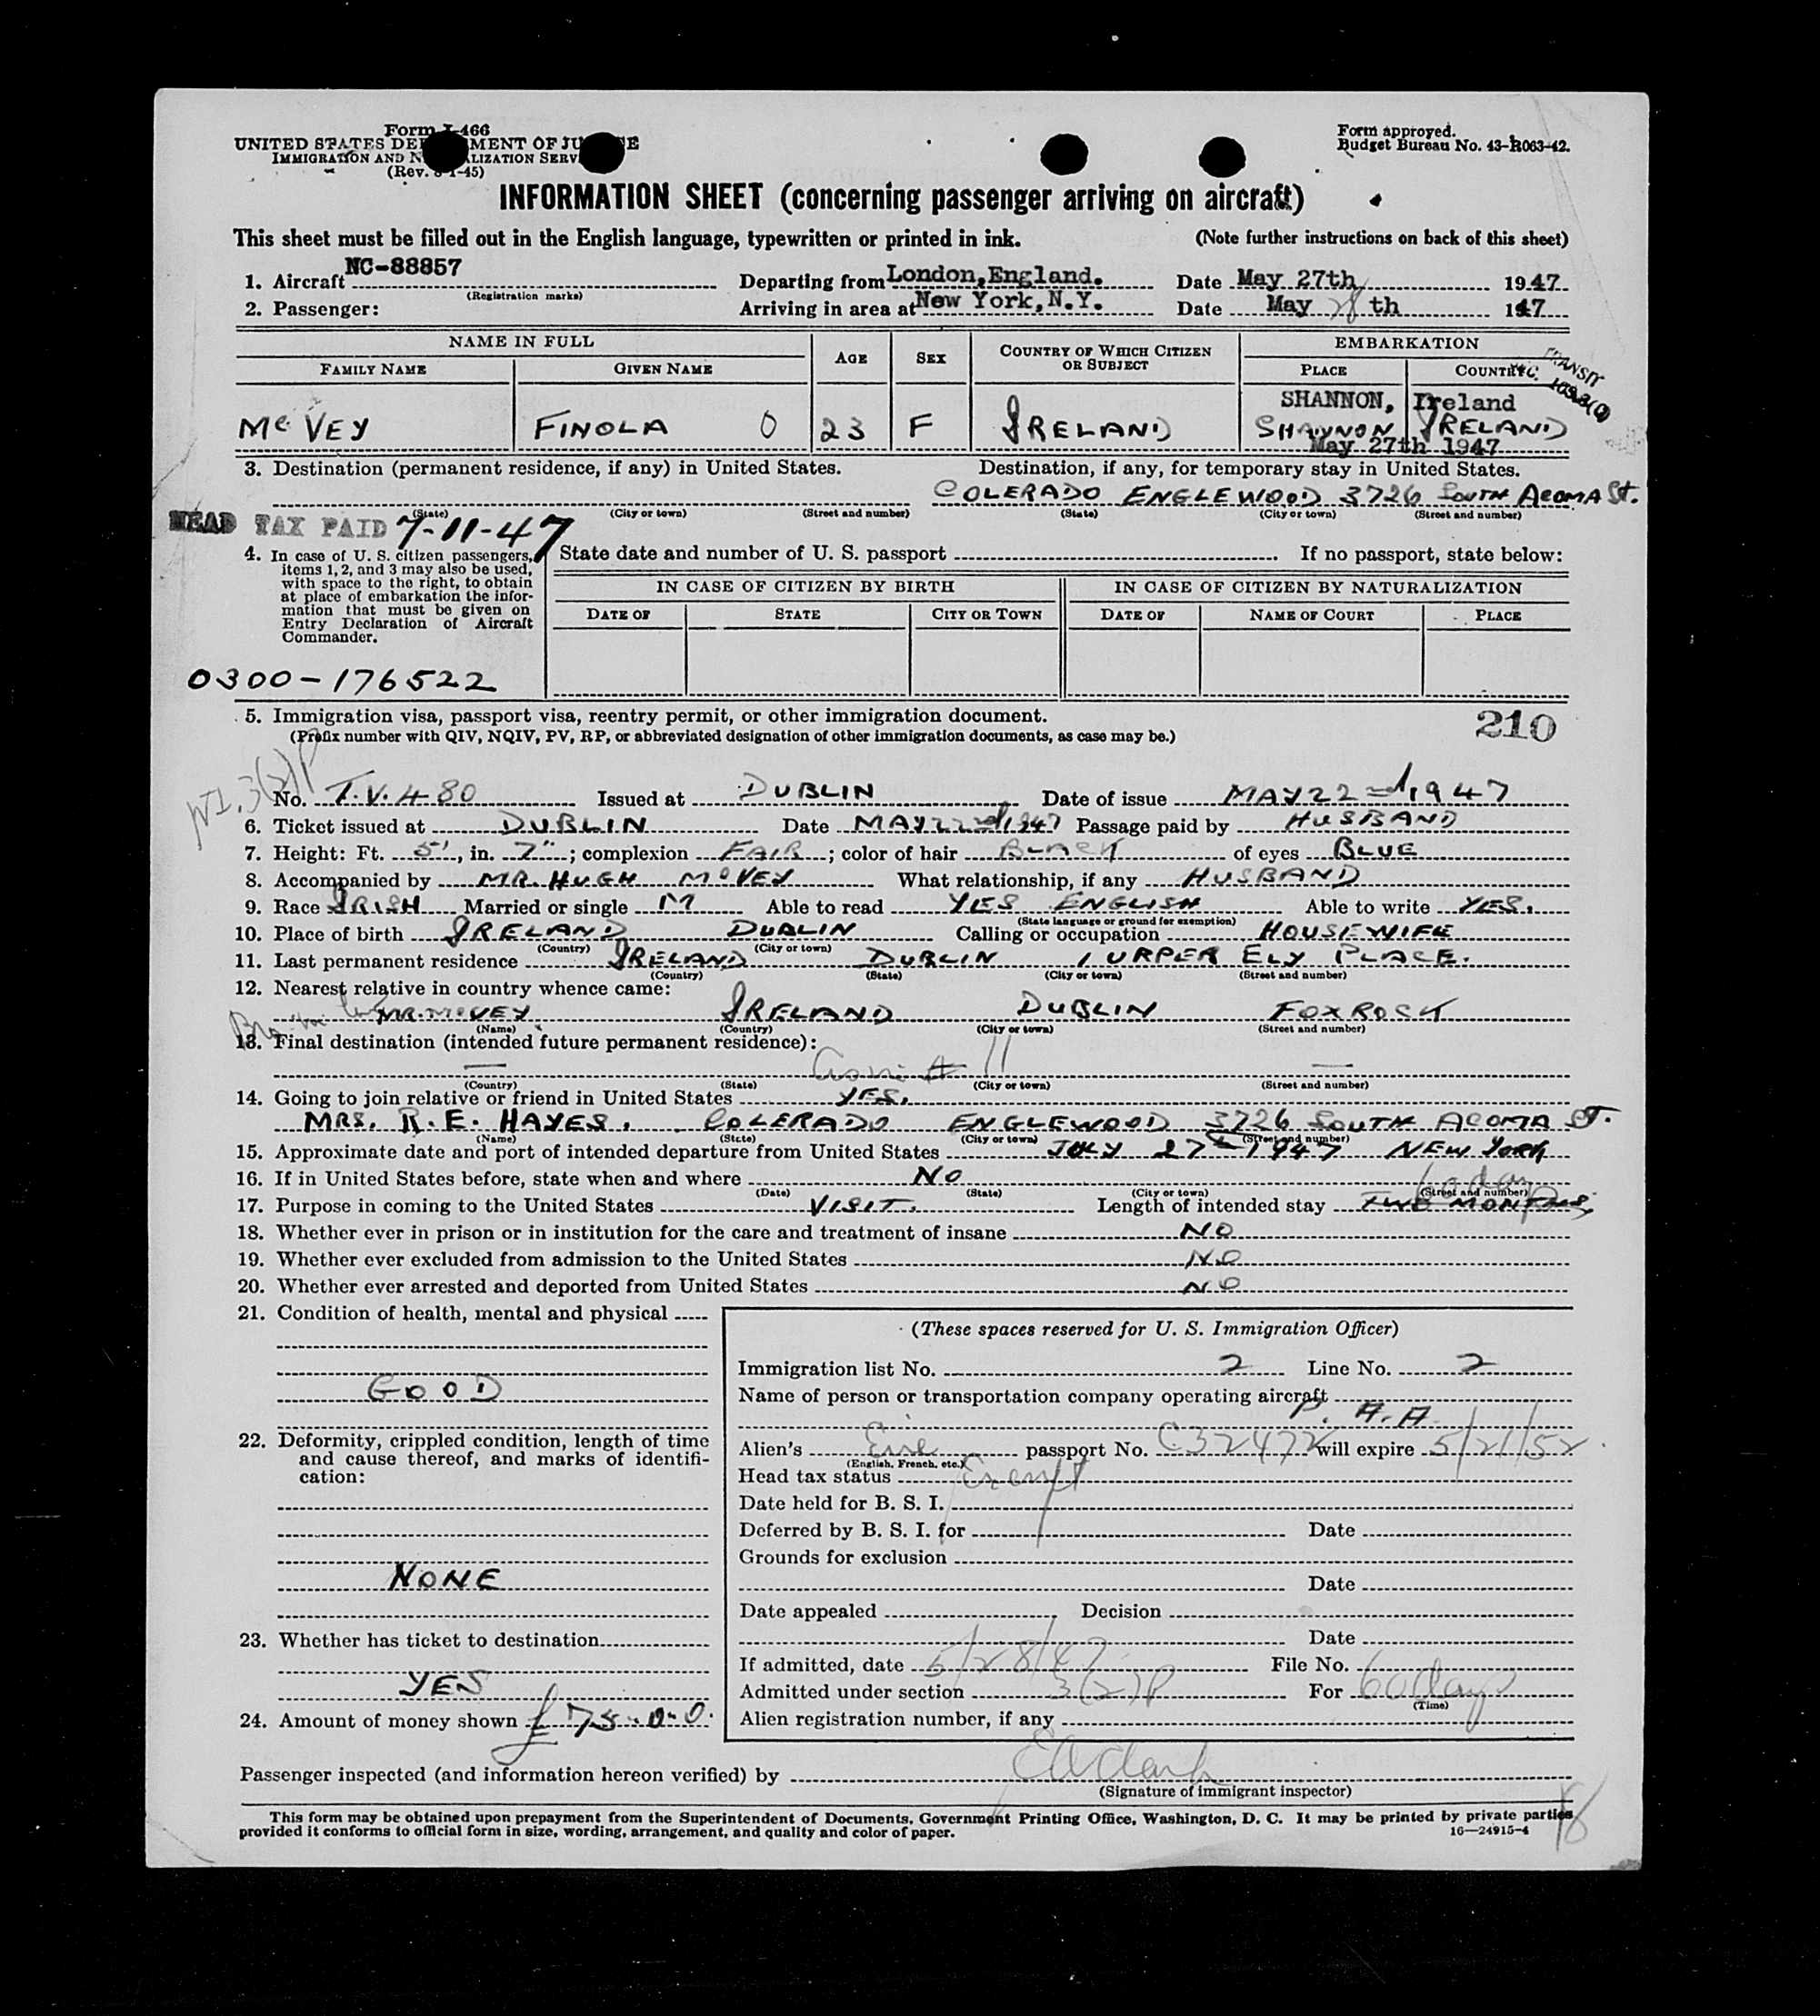 Form I-466
UNITED STATES DEPARTMENT OF JUSTICE
IMMIGRATION AND NATURALIZATION SERVICE
(Rev. 8-1-45)
Form approved.
Budget Bureau No. 43-R063-42.
INFORMATION SHEET (concerning passenger arriving on aircraft)
This sheet must be filled out in the English language, typewritten or printed in ink. (Note further instructions on back of this sheet)
1. Aircraft NC-88857 Departing from London, England. Date May 27th 1947
(Registration marks)
2. Passenger: Arriving in area at New York, N.Y. Date May 28 th 147
NAME IN FULL AGE SEX COUNTRY OF WHICH CITIZEN OR SUBJECT EMBARKATION
FAMILY NAME GIVEN NAME PLACE COUNTRY
TRANSIT
SHANNON, Ireland
McVEY FINOLA O 23 F IRELAND SHANNON IRELAND
May 27th 1947
3. Destination (permanent residence, if any) in United States. Destination, if any, for temporary stay in United States.
COLERADO ENGLEWOOD 3726 SOUTH ACOMA St.
(State) (City or town) (Street and number) (State) (City or town) (Street and number)
HEAD TAX PAID 7-11-47
4. In case of U. S. citizen passengers, items 1, 2, and 3 may also be used, with space to the right, to obtain at place of embarkation the information that must be given on Entry Declaration of Aircraft Commander.
State date and number of U. S. passport If no passport, state below:
IN CASE OF CITIZEN BY BIRTH IN CASE OF CITIZEN BY NATURALIZATION
DATE OF STATE CITY OR TOWN DATE OF NAME OF COURT PLACE
0300-176522
5. Immigration visa, passport visa, reentry permit, or other immigration document. 210
(Prefix number with QIV, NQIV, PV, RP, or abbreviated designation of other immigration documents, as case may be.)
3(2)P
No. T.V. 480 Issued at DUBLIN Date of issue MAY 22nd 1947
6. Ticket issued at DUBLIN Date MAY 22nd 1947 Passage paid by HUSBAND
7. Height: Ft. 5', in. 7"; complexion FAIR; color of hair BLACK of eyes BLUE
8. Accompanied by MR. HUGH McVEY What relationship, if any HUSBAND
9. Race IRISH Married or single M Able to read YES ENGLISH Able to write YES.
(State language or ground for exemption)
10. Place of birth IRELAND DUBLIN Calling or occupation HOUSEWIFE
(Country) (City or town)
11. Last permanent residence IRELAND DUBLIN 1 URPER ELY PLACE.
(Country) (State) (City or town) (Street and number)
12. Nearest relative in country whence came:
MR. McVEY IRELAND DUBLIN FOXROCK
(Name) (Country) (City or town) (Street and number)
13. Final destination (intended future permanent residence):
— —
(Country) (State) (City or town) (Street and number)
14. Going to join relative or friend in United States YES.
MRS. R. E. HAYES. COLERADO ENGLEWOOD 3726 SOUTH ACOMA ST.
(Name) (State) (City or town) (Street and number)
15. Approximate date and port of intended departure from United States JULY 27th 1947 NEW YORK
16. If in United States before, state when and where NO
(Date) (State) (City or town) (Street and number)
60 days
17. Purpose in coming to the United States VISIT. Length of intended stay TWO MONTHS
18. Whether ever in prison or in institution for the care and treatment of insane NO
19. Whether ever excluded from admission to the United States NO
20. Whether ever arrested and deported from United States NO
21. Condition of health, mental and physical
GOOD
22. Deformity, crippled condition, length of time and cause thereof, and marks of identification:
NONE
23. Whether has ticket to destination
YES
24. Amount of money shown £75-0-0.
(These spaces reserved for U. S. Immigration Officer)
Immigration list No. 2 Line No. 2
Name of person or transportation company operating aircraft
P. A. A
Alien's Eire passport No. C32472 will expire 5/21/52
(English, French, etc.)
Head tax status Exempt
Date held for B. S. I.
Deferred by B. S. I. for Date
Grounds for exclusion
Date
Date appealed Decision
Date
If admitted, date 5/28/47 File No.
Admitted under section 3(2)P For 60 days
(Time)
Alien registration number, if any
Passenger inspected (and information hereon verified) by
(Signature of immigrant inspector)
This form may be obtained upon prepayment from the Superintendent of Documents, Government Printing Office, Washington, D. C. It may be printed by private parties
provided it conforms to official form in size, wording, arrangement, and quality and color of paper. 16—24915-4